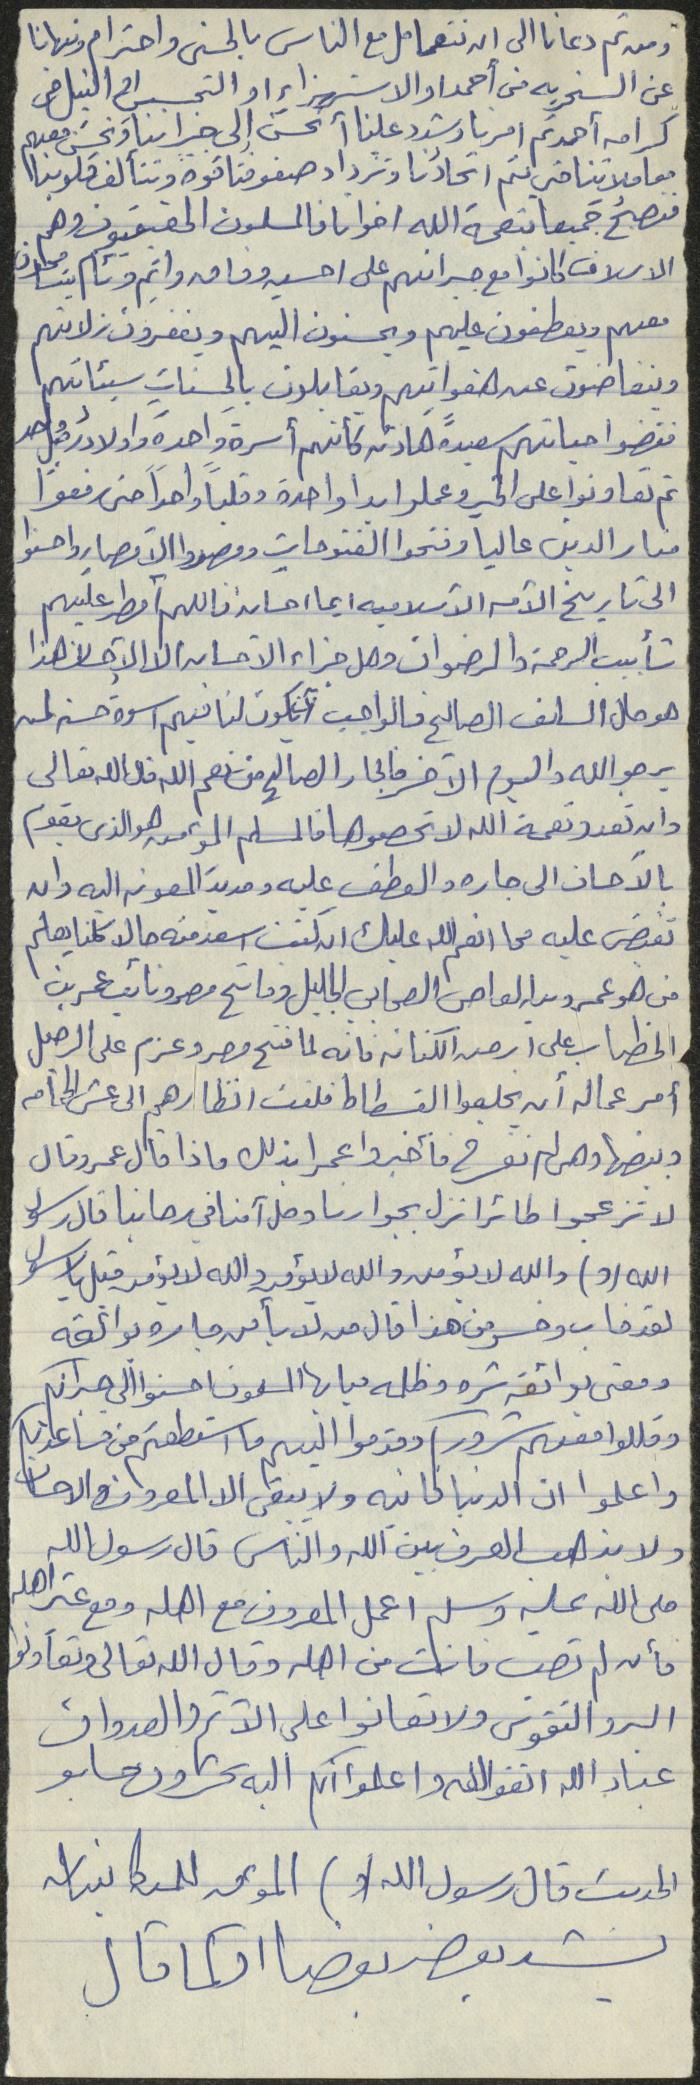 ومن ثم دعانا الى ان نتعامل مع الناس بالحسنى واحترام ونهانا
عن السخريه من أحد او الاستهزاء او التجسس او النيل من
كرامه أحد ثم امرنا وشدد علينا أن نحسن إلى جيراننا ونحسن معهم
معاملاتنا حتى يتم اتحادنا وتزداد صفوفنا قوة وتتألف قلوبنا
فنصبح جميعا بنعمة الله اخوانا فالمسلمون الحقيقيون وهم
الاسلاف كانوا مع جيرانهم على احسن وفاق واتم وئام
معهم ويعطفون عليهم ويحسنون اليهم ويغفرون زلاتهم
ويتغاضون عن هفواتهم ويقابلون بالحسنات سيئاتهم
فقضوا حياتهم سعيدةً هادئه كأنهم أسرة واحدة واولاد رجل واحد
ثم تعاونوا على الخير وعملوا يدا واحدة وقلباً واحداً حتى رفعوا
منار الدين عالياً وفتحوا الفتوحات ومصروا الأمصار واحسنوا
الى تاريخ الأمه الأسلاميه ايما احسان فاللهم أمطر عليهم
شأبيب الرحمة والرضوان وهل جزاء الاحسان الا الإحسان هذا
هو حال السلف الصالح فالواجب أن يكون لنا فيهم اسوة حسنه لمن
يرجو الله واليوم الآخر فالجار الصالح من نعم الله قال الله تعالى
وان تعدو نعمة الله لا تحصوها فالمسلم المؤمن هو الذى يقوم
بالأحسان الى جاره والعطف عليه ومد يد المعونه اليه وان
تفيض عليه مما انعم الله عليك ان كنت اسعد منه حالا كلنا يعلم
من هو عمرو بن العاص الصحابي الجليل وفاتح مصر ونائب عمر بن
الخطاب على ارض الكنانه فانه لما فتح مصر وعزم على الرحيل
أمر عماله أن يخلعوا الفسطاط فلفت انظارهم الى عش الحمامه
وبيضها وهى لم تفرخ فأخبروا عمرا بذلك ماذا قال عمرو قال
لا تزعجوا طائرا نزل بجوارنا وحل آمنا في رحابنا قال رسول
الله (ص) والله لا يؤمن والله لا يؤمن والله لا يؤمن قيل يا رسول
لقد خاب وخسر من هذا قال من لا يأمن جاره بوائقه
ومعنى بوائقه شره وظلمه فيا ايها المسلمون احسنوا الى جيرانكم
وقللوا معهم شروركم وقدموا اليهم ما استطعتم من مساعداتكم
واعلموا ان الدنيا فانيه ولا يبقى الا المعروف والاحسان
ولا يذهب العرف بين الله والناس قال رسول الله
صلى الله عليه وسلم اعمل المعروف مع اهله ومع غير اهله
فأن لم تصب فانت من اهله وقال الله تعالى وتعاونوا
البر والتقوى ولا تعانوا على الأثم والعدوان
عباد الله اتقوا الله واعلموا انكم اليه تحشرون
الحديث قال رسول الله (ص) المؤمن للمؤمن كالبنيان
يشد بعضه بعضا او كما قال